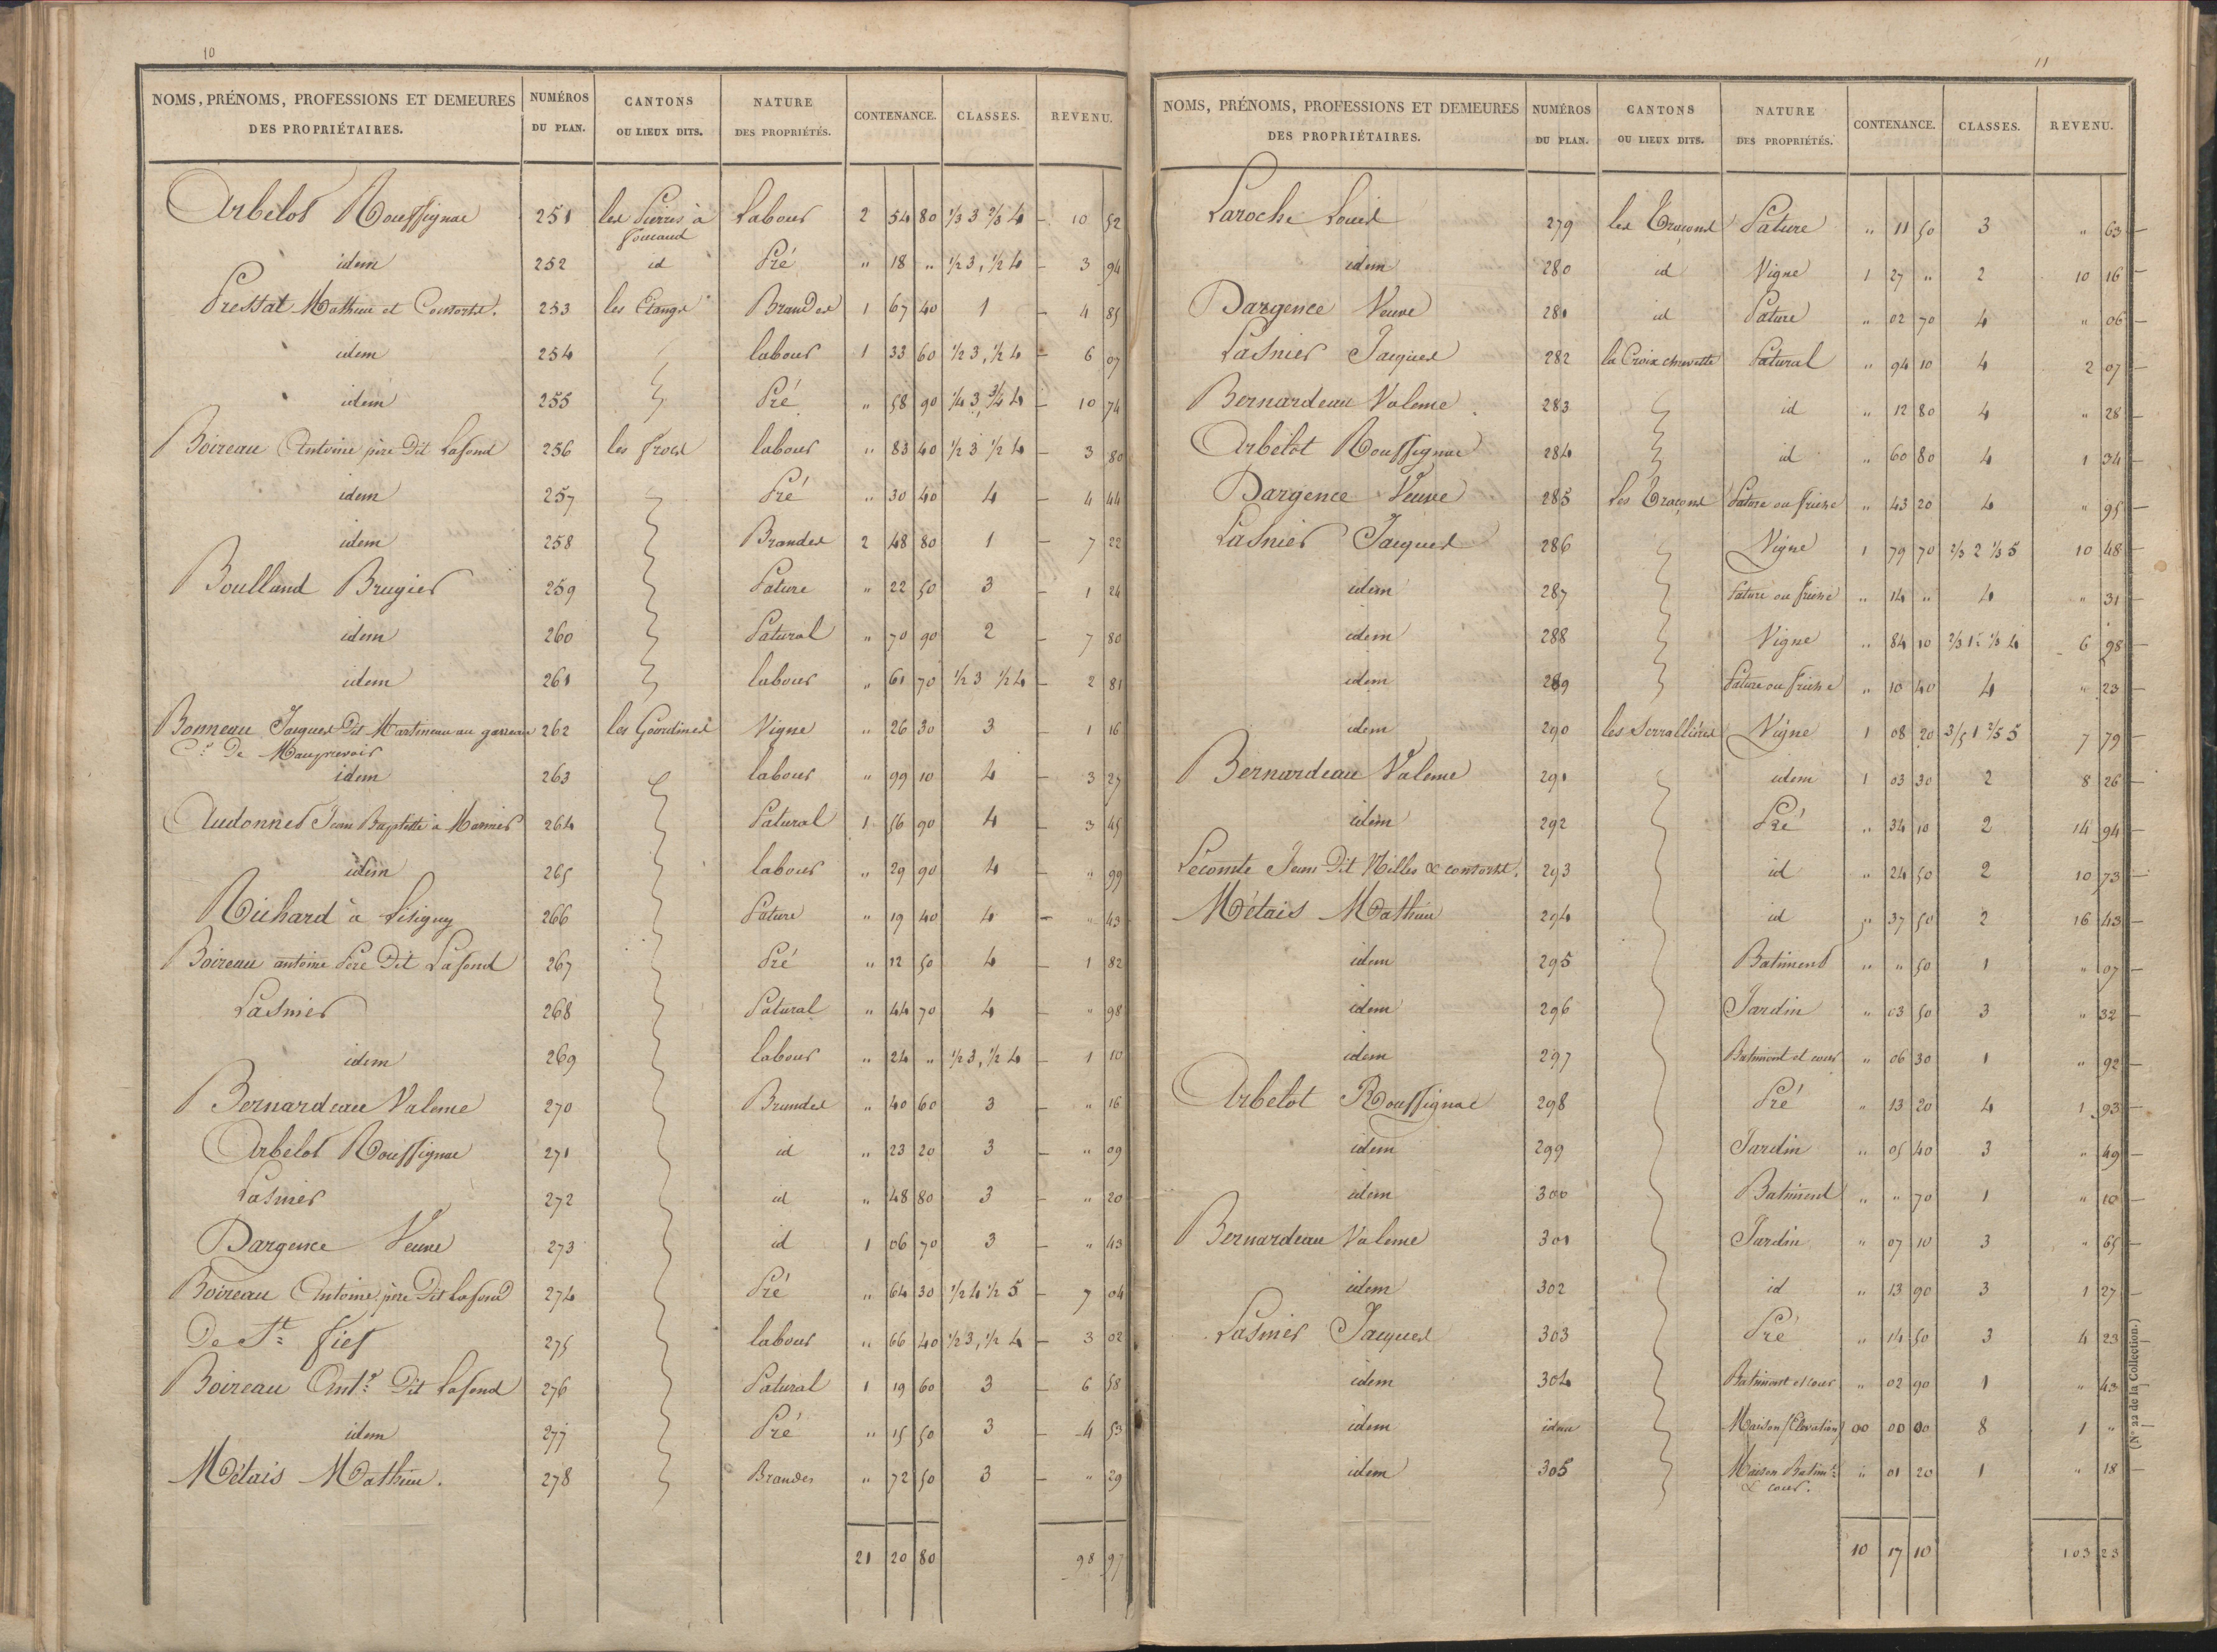 10
NOMS, PRÉNOMS, PROFESSIONS ET DEMEURES DES PROPRIÉTAIRES. NUMÉROS DU PLAN. CANTONS OU LIEUX DITS. NATURE DES PROPRIÉTÉS. CONTENANCE. CLASSES. REVENU.
Arbelot Rouffignac 251 les Pierres à Labour 2 54 80 1/3 3 2/3 4 – 10 52
foucaud
idem 252 id Pré " 18 " 1/2 3, 1/2 4 – 3 94
Pressat Mathieu et Consorts. 253 les Etangs Brandes 1 67 40 1 – 4 85
idem 254 labour 1 33 60 1/2 3, 1/2 4 – 6 07
idem 255 Pré " 58 90 1/4 3, 3/4 4 – 10 74
Boireau Antoine père Dit Lafond 256 les frocs labour " 83 40 1/2 3 1/2 4 – 3 80
idem 257 Pré " 30 40 4 – 4 44
idem 258 Brandes 2 48 80 1 – 7 22
Boulland Brugier 259 Pature " 22 50 3 – 1 24
idem 260 Patural " 70 90 2 – 7 80
idem 261 labour " 61 70 1/2 3 1/2 4 – 2 81
Bonneau Jacques Dit Martineau au 262 les Gourdines Vigne " 26 30 3 – 1 16
Cne De Mauprevoir
idem 263 labour " 99 10 4 – 3 27
Audonnet Jean Baptiste à 264 Patural 1 56 90 4 – 3 45
idem 265 labour " 29 90 4 – " 99
Richard à Lisigny 266 Pature " 19 40 4 – " 43
Boireau antoine Père Dit Lafond 267 Pré " 12 50 4 – 1 82
Lasnier 268 Patural " 44 70 4 – " 98
idem 269 labour " 24 " 1/2 3, 1/2 4 – 1 10
Bernardeau Valeme 270 Brandes " 40 60 3 – " 16
Arbelot Rouffignac 271 id " 23 20 3 – " 09
Lasnier 272 id " 48 80 3 – " 20
Dargence Veuve 273 id 1 06 70 3 – " 43
Boireau Antoine père Dit Lafond 274 Pré " 64 30 1/2 4 1/2 5 – 7 04
De St fief 275 labour " 66 40 1/2 3, 1/2 4 – 3 02
Boireau Ante Dit Lafond 276 Patural 1 19 60 3 – 6 58
idem 277 Pré " 15 50 3 – 4 53
Métais Mathieu. 278 Brandes " 72 50 3 – " 29
21 20 80 98 97
11
NOMS, PRÉNOMS, PROFESSIONS ET DEMEURES DES PROPRIÉTAIRES. NUMÉROS DU PLAN. CANTONS OU LIEUX DITS. NATURE DES PROPRIÉTÉS. CONTENANCE. CLASSES. REVENU.
Laroche Louis 279 les Pature " 11 50 3 " 63 –
idem 280 id Vigne 1 27 " 2 10 16 –
Dargence Veuve 281 id Pature " 02 70 4 " 06 –
Lasnier Jacques 282 la Croix Patural " 94 10 4 2 07 –
Bernardeau Valeme 283 id " 12 80 4 " 28 –
Arbelot Rouffignac 284 id " 60 80 4 1 34 –
Dargence Veuve 285 les Pature ou friche " 43 20 4 " 95 –
Lasnier Jacques 286 Vigne 1 79 70 2/3 2 1/3 5 10 48 –
idem 287 Pature ou friche " 14 " 4 " 31 –
idem 288 Vigne " 84 10 2/3 1 1/3 4 6 98 –
idem 289 Pature ou friche " 10 40 4 " 23 –
idem 290 les Serrallières Vigne 1 08 20 3/5 1 2/5 5 7 79 –
Bernardeau Valeme 291 idem 1 03 30 2 8 26 –
idem 292 Pré " 34 10 2 14 94 –
Lecomte Jean Dit & consorts. 293 id " 24 50 2 10 73 –
Métais Mathieu 294 id " 37 50 2 16 43 –
idem 295 Batiment " " 50 1 " 07 –
idem 296 Jardin " 03 50 3 " 32 –
idem 297 Batiment et cour " 06 30 1 " 92 –
Arbelot Rouffignac 298 Pré " 13 20 4 1 93 –
idem 299 Jardin " 05 40 3 " 49 –
idem 300 Batiment " " 70 1 " 10 –
Bernardeau Valeme 301 Jardin " 07 10 3 " 65 –
idem 302 id " 13 90 3 1 27 –
Lasnier Jacques 303 Pré " 14 50 3 4 23 –
idem 304 Batiment et cour " 02 90 1 " 43 –
idem idem Maison (Elevation) 00 00 00 8 1 " –
idem 305 Maison Batimt " 01 20 1 " 18 –
& cour.
10 17 10 103 23
(N° 22 de la Collection.)